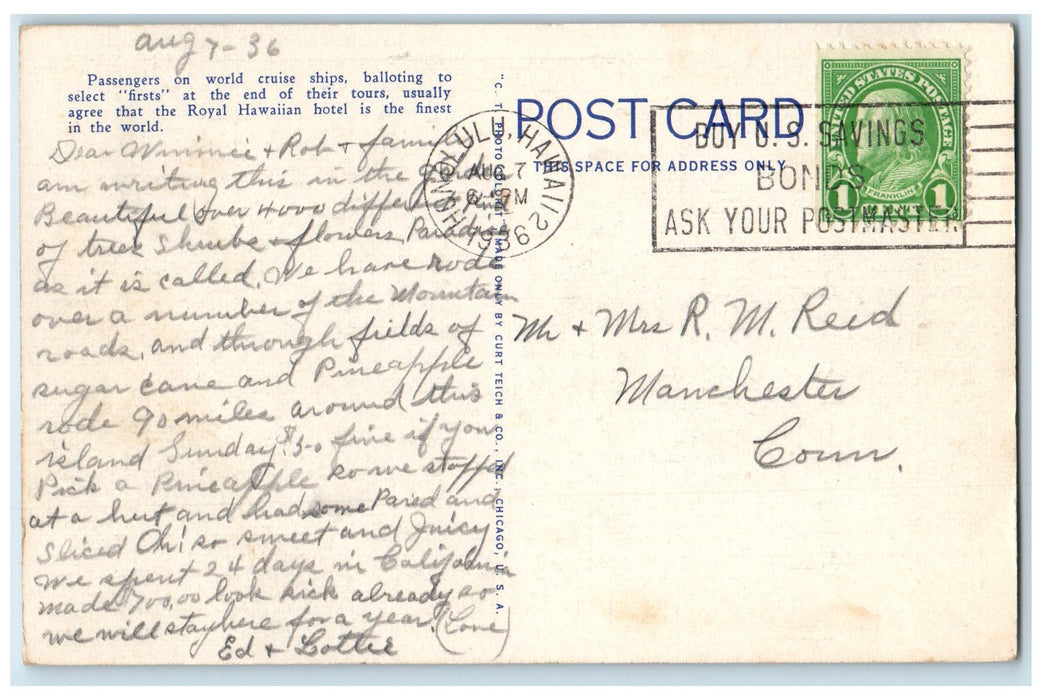 Aug 7-36
Passengers on world cruise ships, balloting to
select "firsts" at the end of their tours, usually
agree that the Royal Hawaiian hotel is the finest
in the world.
Dear Winnie + Rob + family
am writing this in the
Beautiful over 4000 different kinds
of trees shrubs + flowers Paradise
as it is called. We have rode
over a number of the Mountain
roads, and through fields of
sugar cane and Pineapple
rode 90 miles around this
island Sunday. fine if you
Pick a Pineapple so we stopped
at a hut and had some Pared and
sliced Oh! so sweet and Juicy
We spent 24 days in California
made 700.00 look sick already so
we will stay here for a year. (Love)
Ed + Lottie
"C. T. PHOTO COLORIT" MADE ONLY BY CURT TEICH & CO., INC., CHICAGO, U. S. A.
POST CARD
THIS SPACE FOR ADDRESS ONLY
HONOLULU, HAWAII 2
AUG 7
PM
1936
BUY U. S. SAVINGS
BONDS
ASK YOUR POSTMASTER
UNITED STATES POSTAGE
FRANKLIN
1 1
Mr + Mrs R. M. Reid
Manchester
Conn.